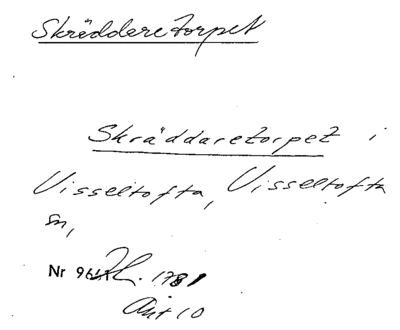 Skräddaretorpet
Skräddaretorpet i
Visseltofta, Visseltofta
sn,
Nr 1781
Akt 10